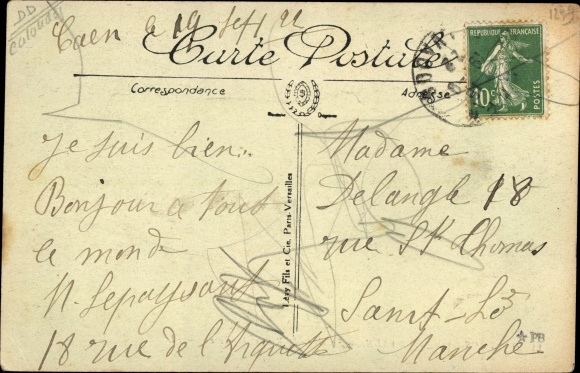 DD
Calvados
Caen a 19 Sept 22
1295
Carte Postale
Correspondance
Adresse
REPUBLIQUE FRANÇAISE
10c
POSTES
Je suis bien.
Bonjour a tout
le monde
N. Lepaysant
18 rue de l'
Madame
Delangle 18
rue St Thomas
Saint-Lô
Manche
Lévy Fils et Cie, Paris-Versailles
PB